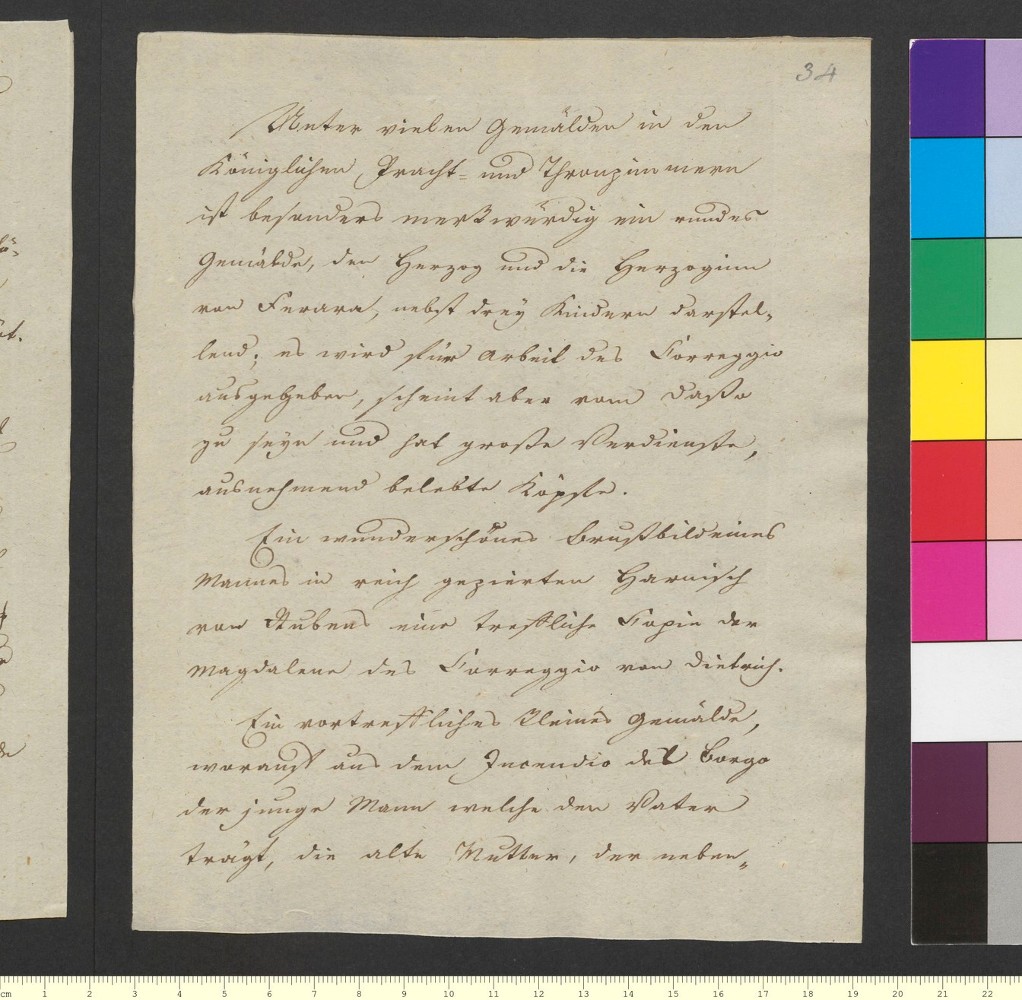 34
Unter vielen Gemälden in den
Königlichen Pracht- und Thronzimmern
ist besonders merkwürdig ein rundes
Gemälde, den Herzog und die Herzoginn
von Ferara, nebst drey Kindern darstel-
lend; es wird für Arbeit des Correggio
ausgegeben, scheint aber vom Daßo
zu seyn und hat große Verdienste,
ausnehmend belebte Köpfe.
Ein wunderschönes Brustbild eines
Mannes in reich gezierten Harnisch
von Rubens eine treffliche Copie der
Magdalene des Correggio von Dietrich.
Ein vortreffliches kleines Gemälde,
worauf aus dem Incendio del Borgo
der junge Mann welche den Vater
trägt, die alte Mutter, der neben-